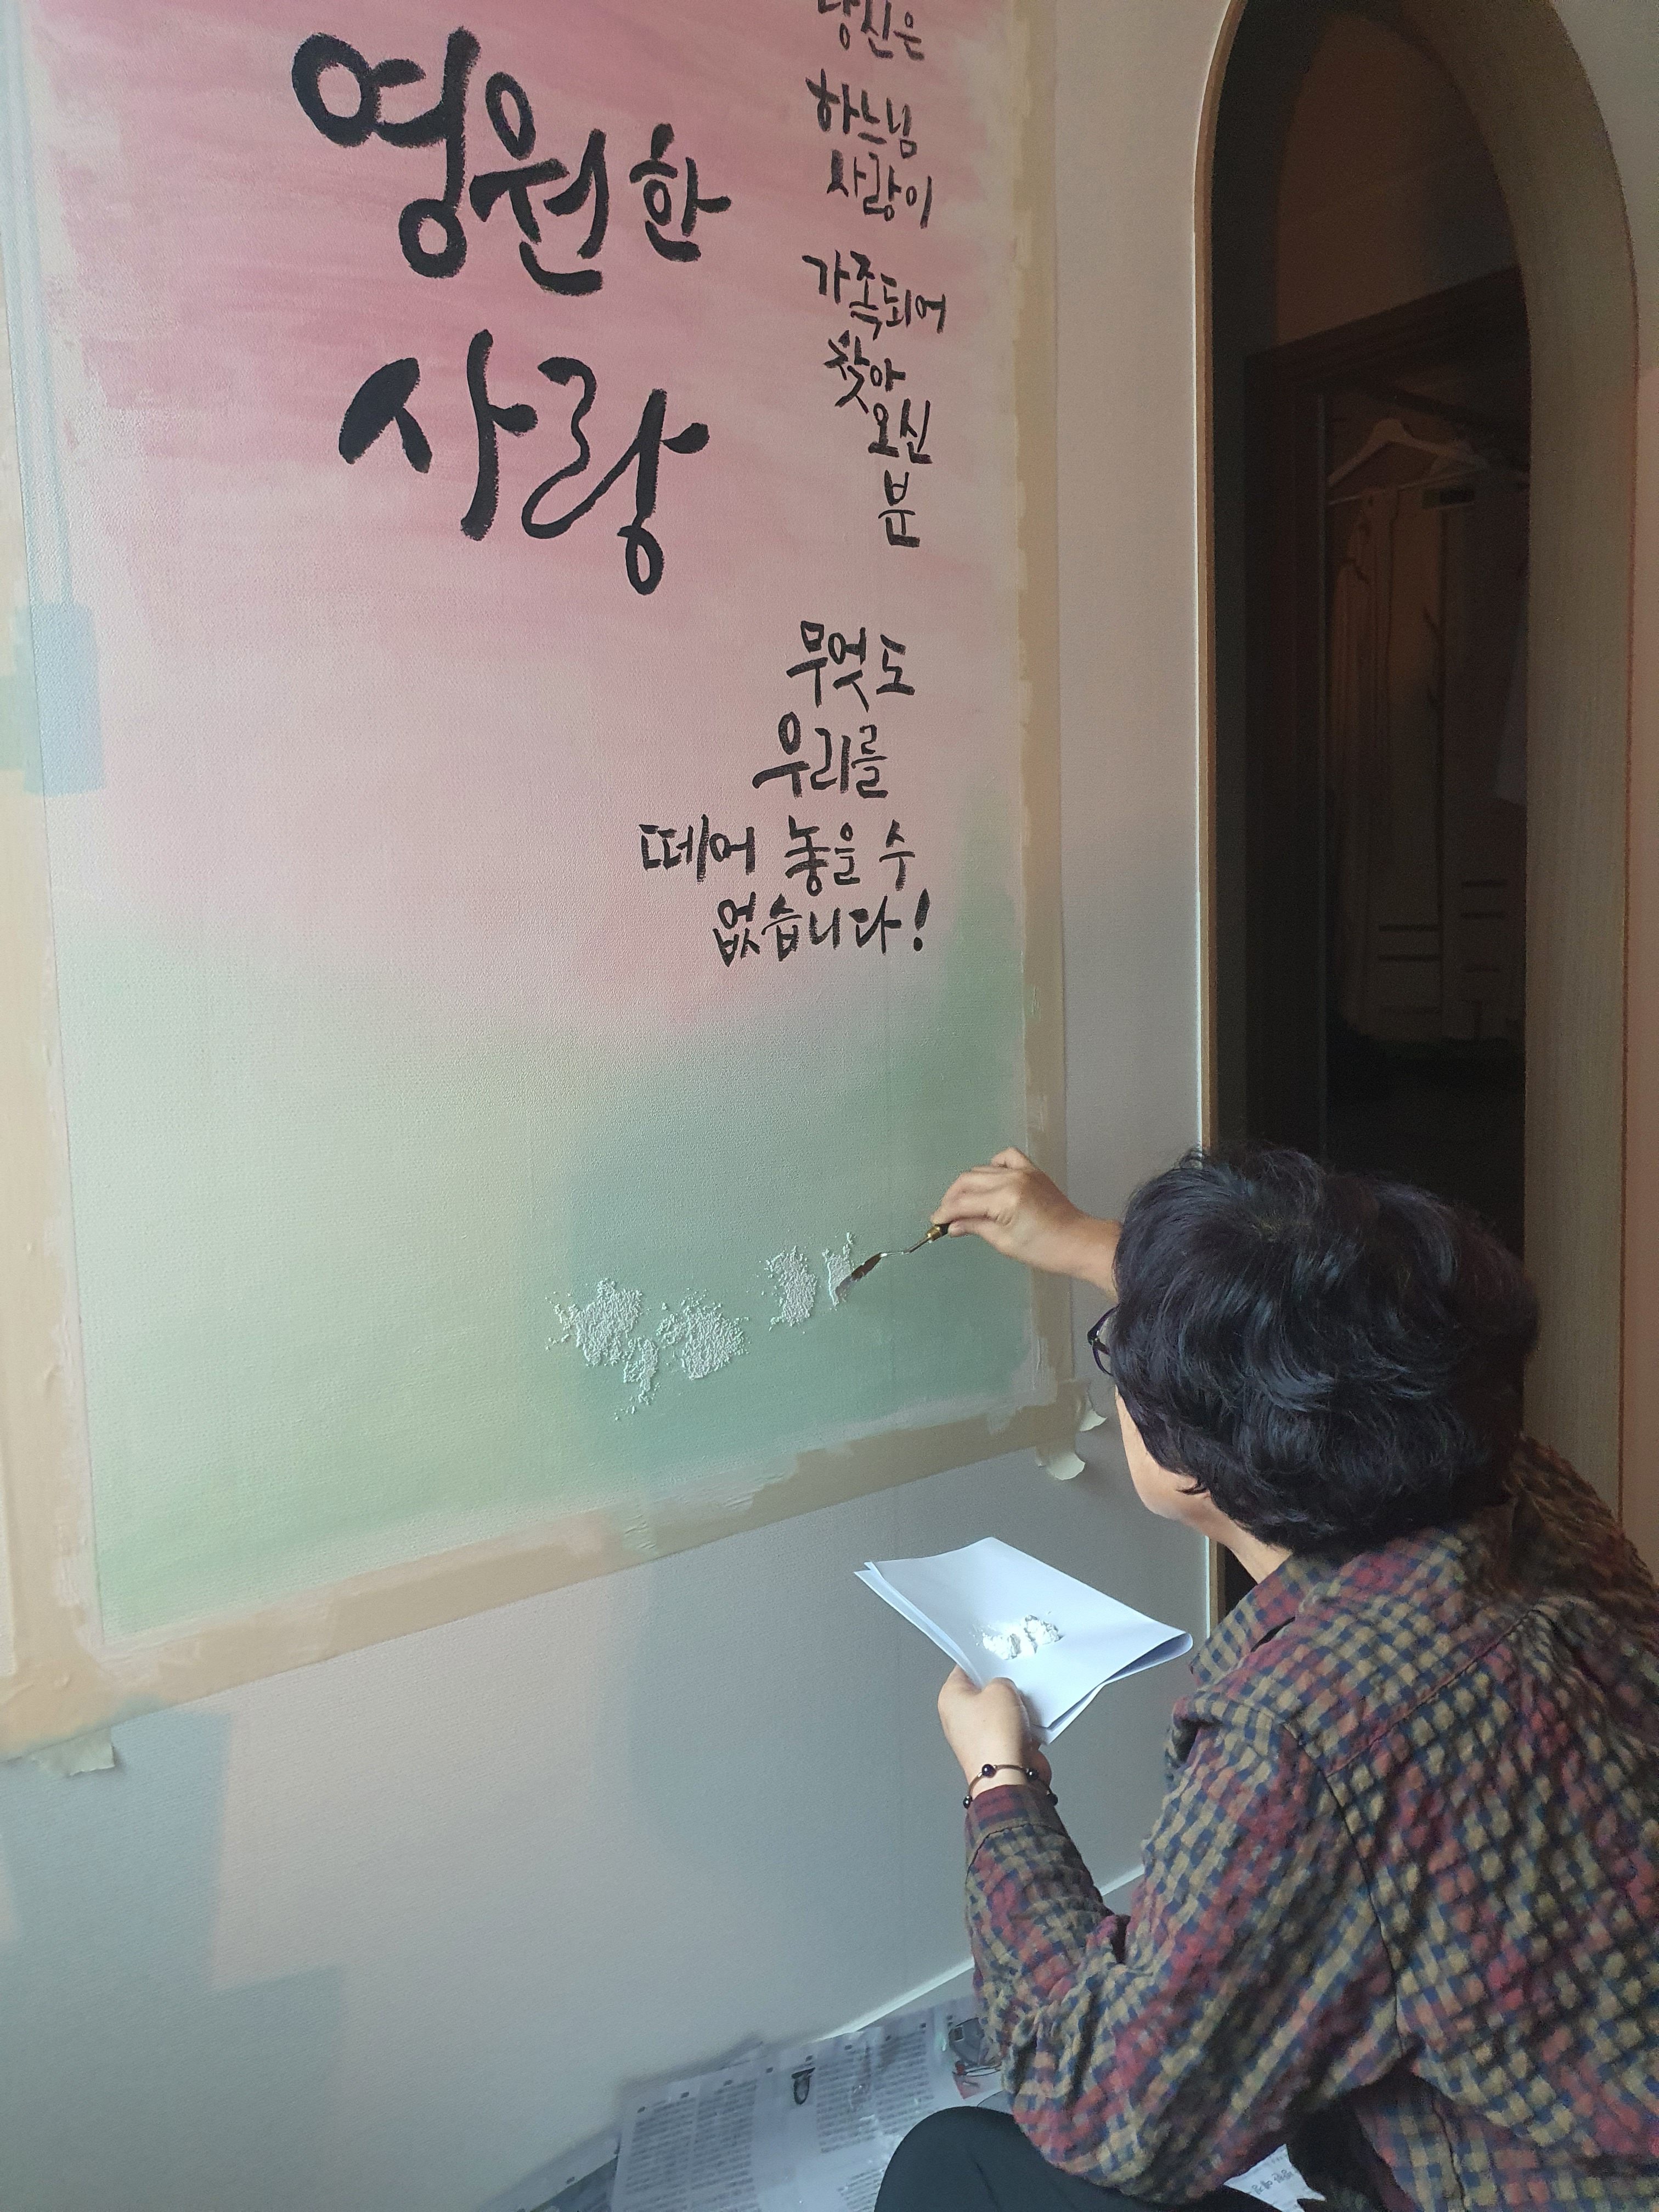 영원한
사랑
당신은
하느님
사랑이
가족되어
찾아
오신
분
무엇도
우리를
떼어 놓을 수
없습니다!